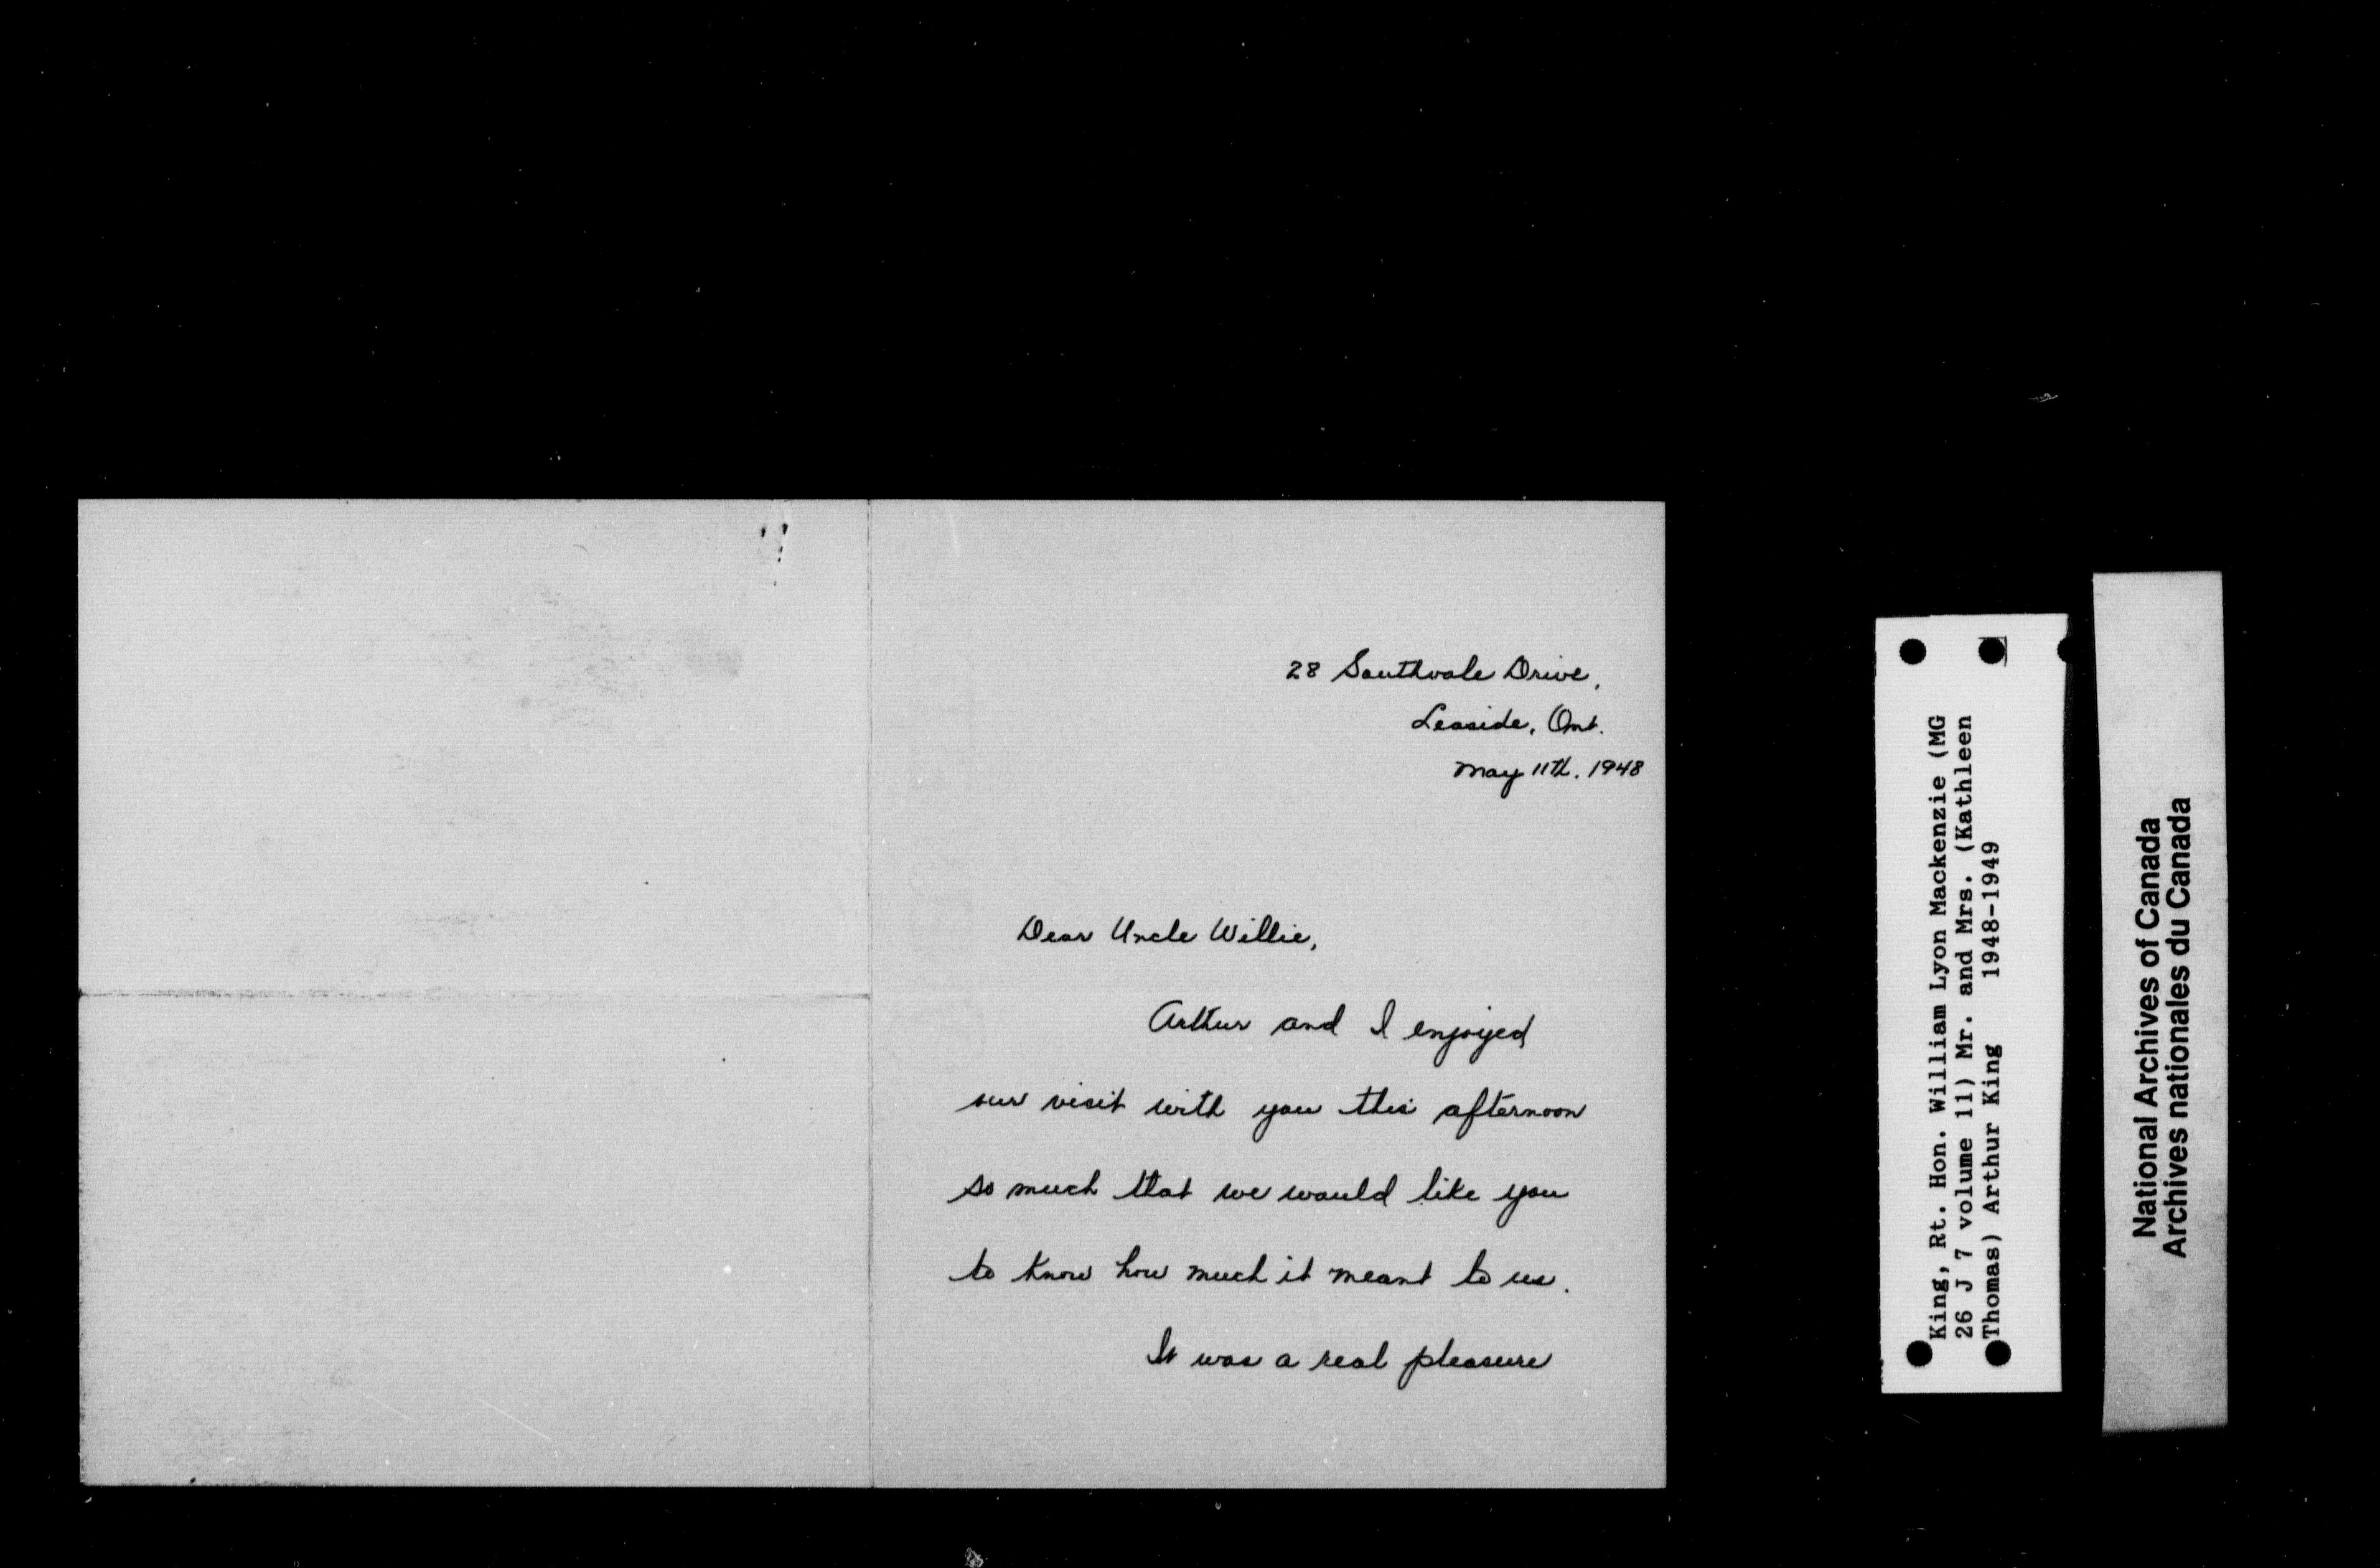 28 Southvale Drive,
Leaside, Ont.
May 11th. 1948
Dear Uncle Willie,
Arthur and I enjoyed
our visit with you this afternoon
so much that we would like you
to know how much it meant to us.
It was a real pleasure
King, Rt. Hon. William Lyon Mackenzie (MG
26 J 7 volume 11) Mr. and Mrs. (Kathleen
Thomas) Arthur King 1948-1949
National Archives of Canada
Archives nationales du Canada